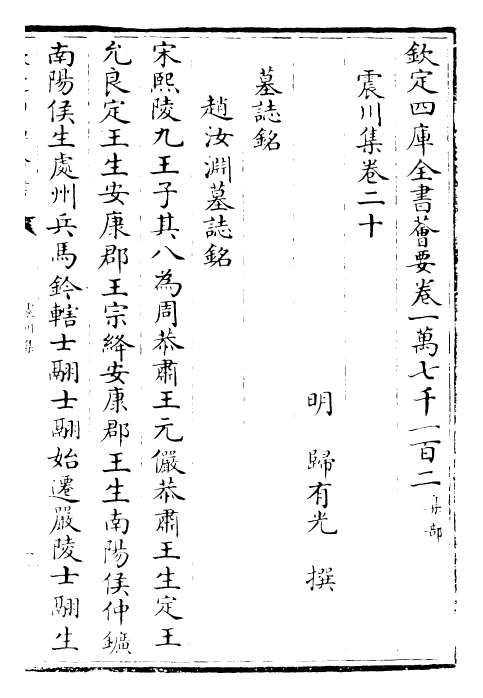 欽定四庫全書薈要卷一萬七千一百二集部
震川集卷二十
明 歸有光 撰
墓誌銘
趙汝淵墓誌銘
宋熙陵九王子其八為周恭肅王元儼恭肅王生定王
允良定王生安康郡王宗絳安康郡王生南陽侯仲鑛
南陽侯生處州兵馬鈐轄士翮士翮始遷嚴陵士翮生
震川集